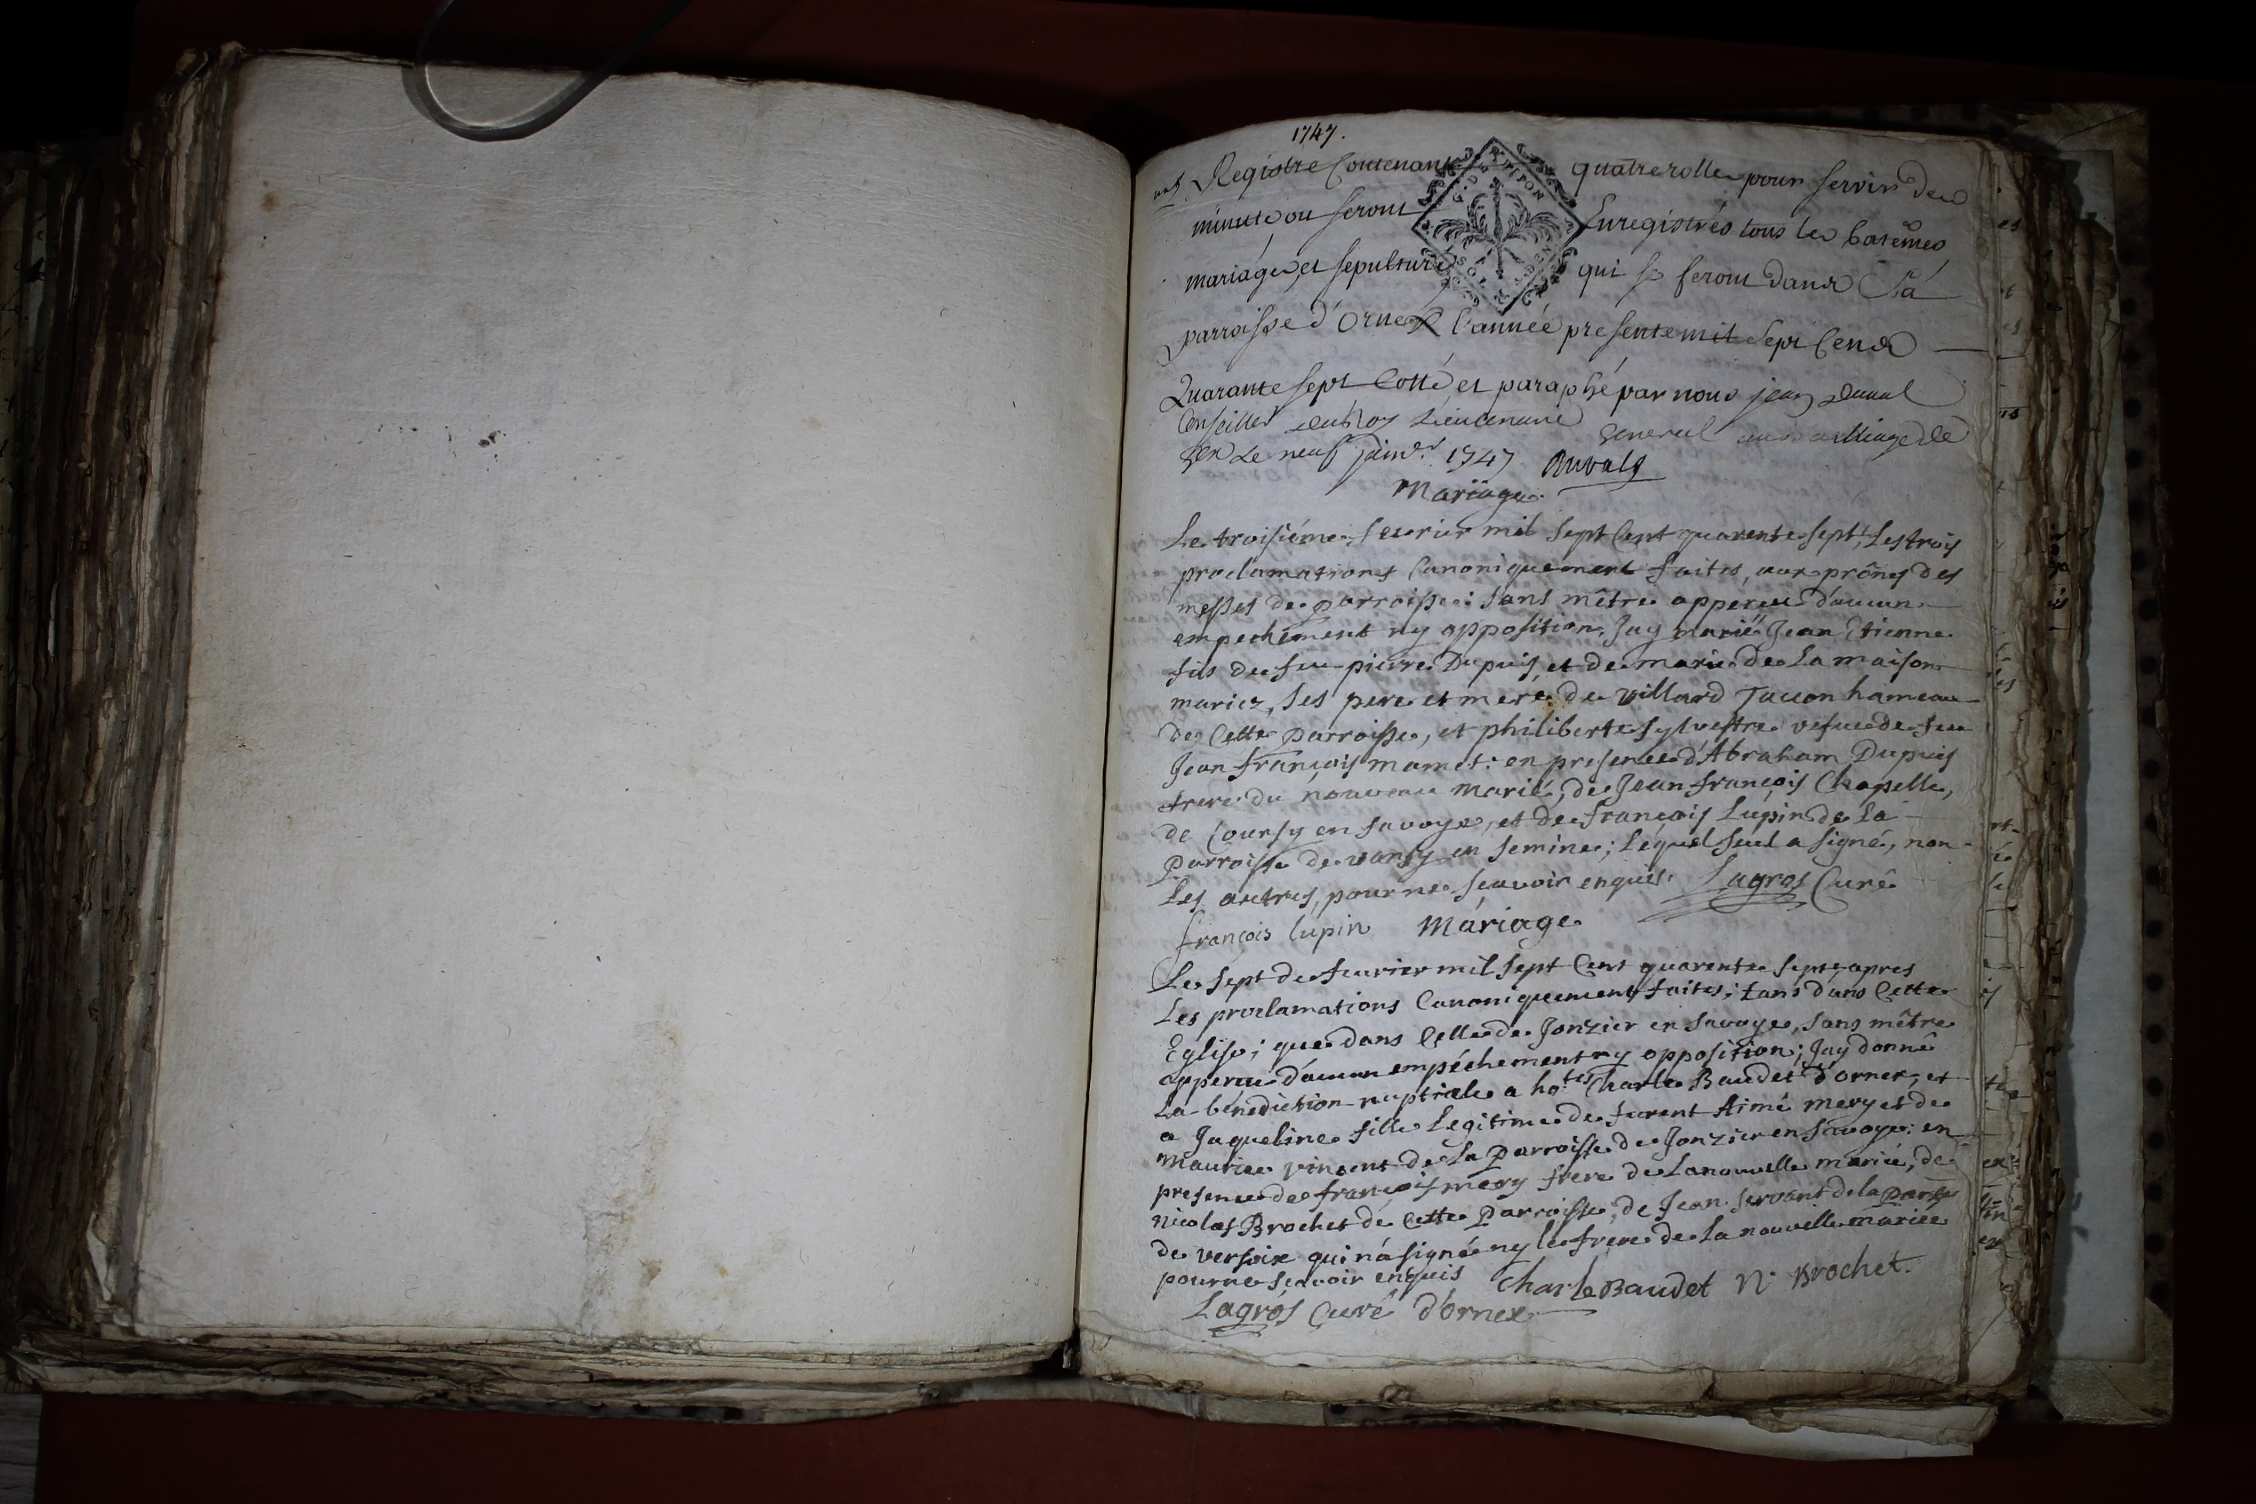 1747.
Registre Contenant quatre rolles pour servir de
minute ou seront Enregistrés tous les batêmes
mariages, et sepultures qui se feront dans la
parroisse d'Ornex l'année presente mil sept Cens
Quarante sept Cotté et paraphé par nous jean Duval
Conseiller du Roy Lieutenant General au bailliage de
Gex Le neuf janvr. 1747 Duval
Mariage.
Le troisiéme feurier mil sept Cent quarente sept, Les trois
proclamations Canoniquement faites, aux prônes des
messes de parroisse: sans mêtre apperçu d'aucun
empechement ny opposition, Jay marié Jean Etienne
fils de feu pierre Dupuis et de marie de La maison
mariez, ses pere et mere de villard Tacon hameau
de Cette parroisse, et philiberte sylvestre vefue de feu
Jean françois mamet: en presence d'Abraham Dupuis
frere du nouveau marié, de Jean françois Chapelle,
de Coursy en savoye, et de françois Lupin de La
Parroisse de vansy en semine; Lequel seul a signé, non
Les autres, pour ne sçavoir enquis. Lagros Curé
françois lupin Máriage
Le sept de feurier mil sept Cent quarente sept, apres
Les proclamations Canoniquement faites; tans dans Cette
Eglise; que dans Celle de Jonzier en savoye, sans mêtre
apperçu d'aucun empéchement ny opposition; Jay donné
La bénédiction nuptiale a ho.tes Charle Baudet d'ornex, et
a Jaqueline fille Legitime de furent Aimé mery et de
Maurise vincent de La Parroisse de Jonzier en savoye: en
presence de françois mery frere de La nouvelle mariée, de
nicolas Brochet de Cette Parroisse, de Jean servant de la Parsse
de versoix qui n'a signé ny le frere de La nouvelle mariée
pour ne sçavoir enquis Charle Baudet N. Brochet.
Lagrós Curé d'ornex